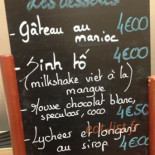 Les desserts
- Gâteau au 4€00
manioc
- Sinh tố 4€00
(milkshake viet à la
mangue
- Mousse chocolat blanc,
speculoos, coco 4€50
- Lychees et longans
au sirop 4€